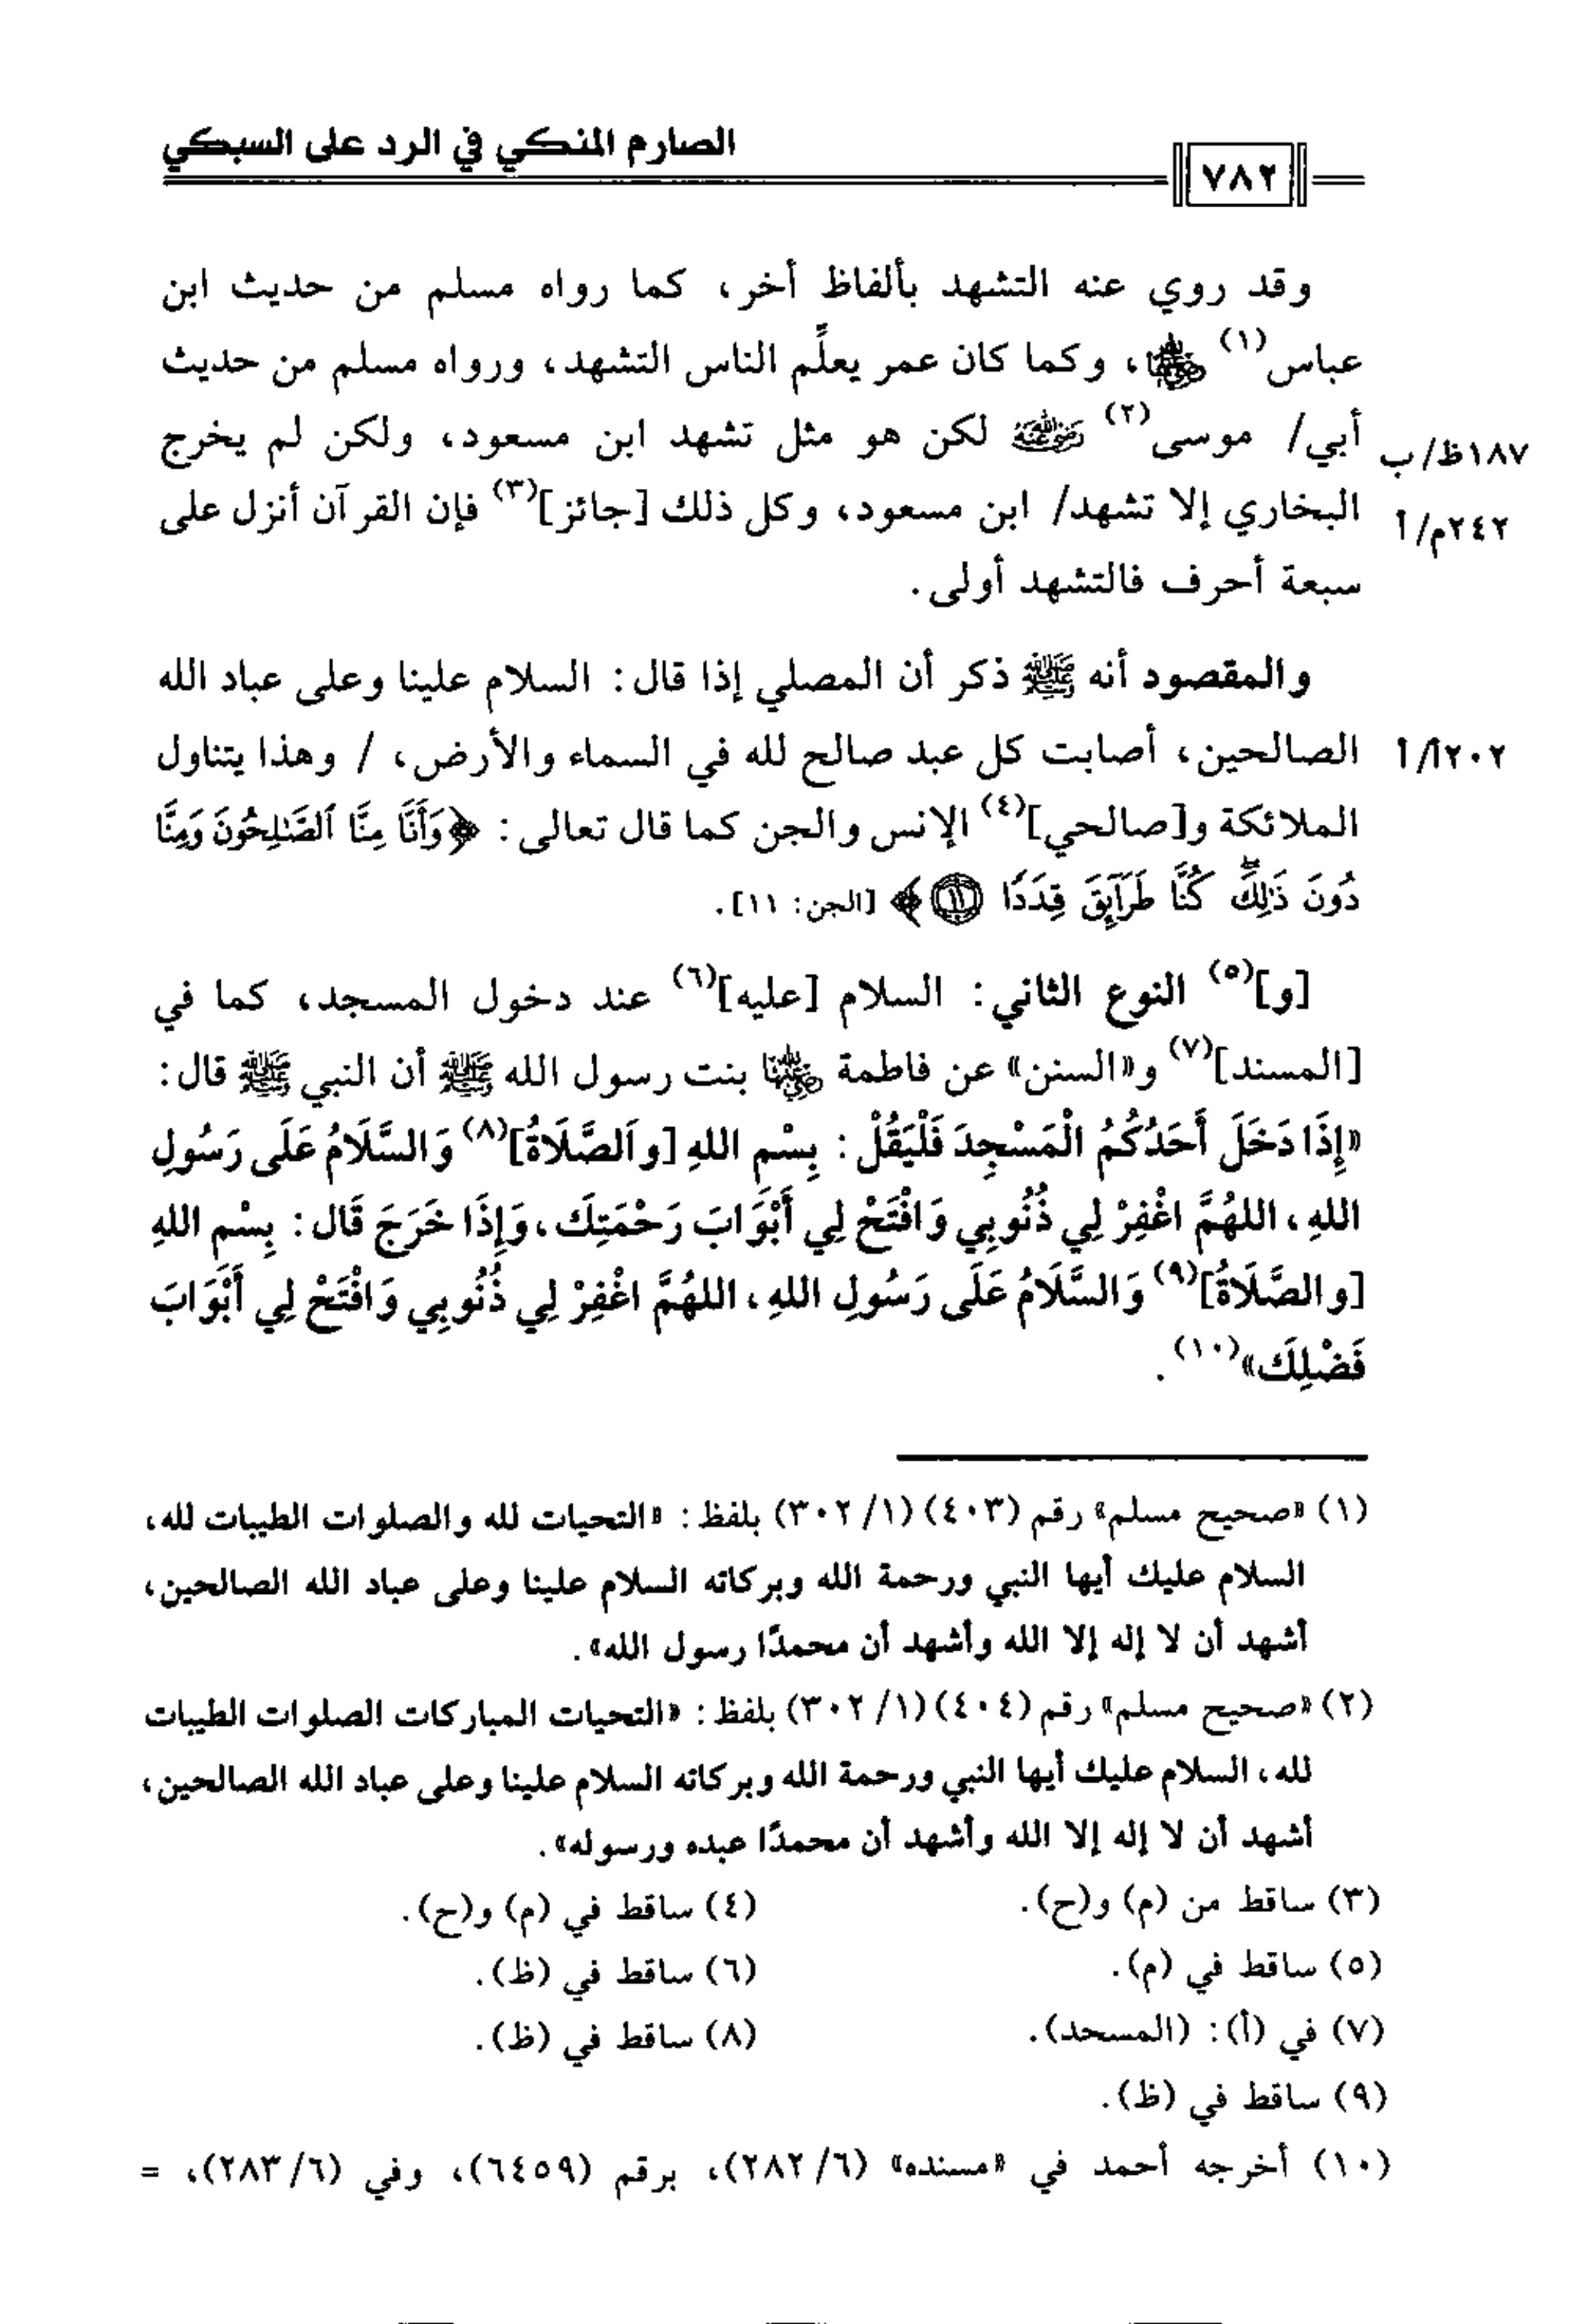 الصارم المنكي في الرد على السبكي
٧٨٢
وقد روي عنه التشهد بألفاظ أخر، كما رواه مسلم من حديث ابن
عباس(١) رضي الله عنهما، وكما كان عمر يعلِّم الناس التشهد، ورواه مسلم من حديث
أبي/ موسى(٢) رضي الله عنه لكن هو مثل تشهد ابن مسعود، ولكن لم يخرج
١٨٧ظ/ب
البخاري إلا تشهد/ ابن مسعود، وكل ذلك [جائز](٣) فإن القرآن أنزل على
٢٤٢م/أ
سبعة أحرف فالتشهد أولى.
والمقصود أنه ﷺ ذكر أن المصلي إذا قال: السلام علينا وعلى عباد الله
الصالحين، أصابت كل عبد صالح لله في السماء والأرض، / وهذا يتناول
٢٠٢أ/أ
الملائكة و[صالحي](٤) الإنس والجن كما قال تعالى: ﴿وَأَنَّا مِنَّا ٱلصَّٰلِحُونَ وَمِنَّا
دُونَ ذَٰلِكَۖ كُنَّا طَرَآئِقَ قِدَدٗا ١١﴾ [الجن: ١١].
[و](٥) النوع الثاني: السلام [عليه](٦) عند دخول المسجد، كما في
[المسند](٧) و«السنن» عن فاطمة رضي الله عنها بنت رسول الله ﷺ أن النبي ﷺ قال:
«إِذَا دَخَلَ أَحَدُكُمُ الْمَسْجِدَ فَلْيَقُلْ: بِسْمِ اللهِ [واَلصَّلَاةُ](٨) وَالسَّلَامُ عَلَى رَسُولِ
اللهِ، اللهُمَّ اغْفِرْ لِي ذُنُوبِي وَافْتَحْ لِي أَبْوَابَ رَحْمَتِكَ، وَإِذَا خَرَجَ قَال: بِسْمِ اللهِ
[والصَّلَاةُ](٩) وَالسَّلَامُ عَلَى رَسُولِ اللهِ، اللهُمَّ اغْفِرْ لِي ذُنُوبِي وَافْتَحْ لِي أَبْوَابَ
فَضْلِكَ»(١٠).
(١) «صحيح مسلم» رقم (٤٠٣) (١/ ٣٠٢) بلفظ: «التحيات لله والصلوات الطيبات لله،
السلام عليك أيها النبي ورحمة الله وبركاته السلام علينا وعلى عباد الله الصالحين،
أشهد أن لا إله إلا الله وأشهد أن محمدًا رسول الله».
(٢) «صحيح مسلم» رقم (٤٠٤) (١/ ٣٠٢) بلفظ: «التحيات المباركات الصلوات الطيبات
لله، السلام عليك أيها النبي ورحمة الله وبركاته السلام علينا وعلى عباد الله الصالحين،
أشهد أن لا إله إلا الله وأشهد أن محمدًا عبده ورسوله».
(٣) ساقط من (م) و(ح). (٤) ساقط في (م) و(ح).
(٥) ساقط في (م). (٦) ساقط في (ظ).
(٧) في (أ): (المسحد). (٨) ساقط في (ظ).
(٩) ساقط في (ظ).
(١٠) أخرجه أحمد في «مسنده» (٦/ ٢٨٢)، برقم (٦٤٥٩)، وفي (٦/ ٢٨٣)، =